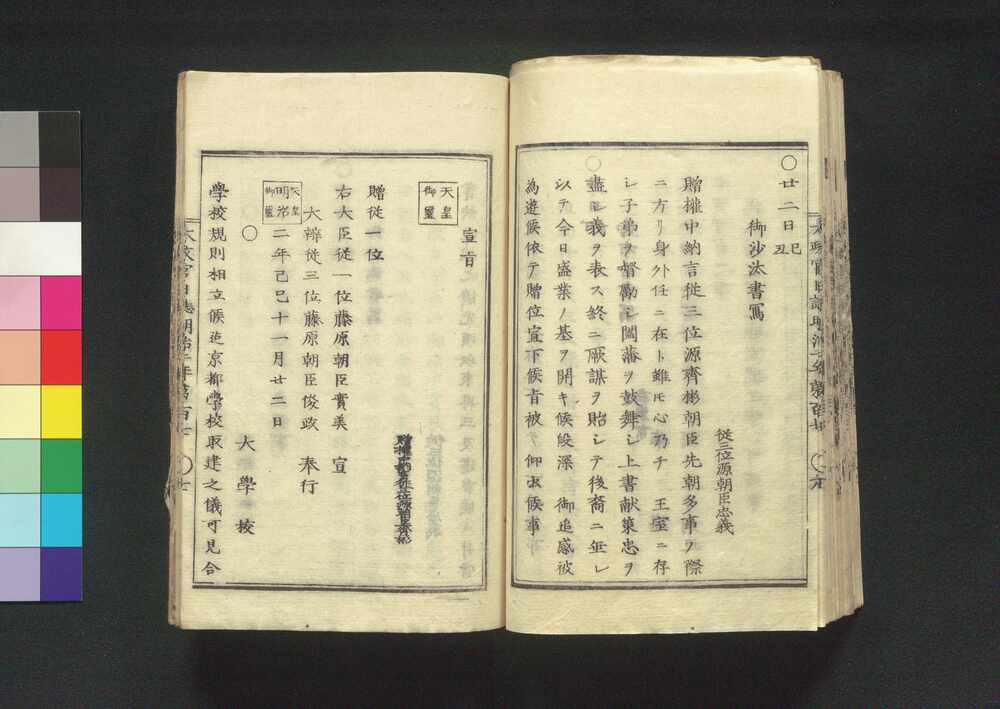 〇廿二日己丑
御沙汰書写
從三位源朝臣忠義
贈權中納言從三位源齊彬朝臣先朝多事ヲ際
ニ方リ身外任ニ在ト雖𪜈心乃チ 王室ニ存
シ子弟ヲ督勵シ闔藩ヲ鼓舞シ上書献策忠ヲ
盡シ義ヲ表ス終ニ厥謀ヲ貽シテ後裔ニ垂レ
以テ今日盛業ノ基ヲ開キ候段深 御追感被
為遊候依テ贈位宣下候旨被 仰出候事
太政官日誌明治二年第百七 〇六
宣旨
天皇御璽
贈權中納言從三位源朝臣齊彬
贈從一位
右大臣從一位藤原朝臣實美 宣
大辨從三位藤原朝臣俊政 奉行
天皇御璽
明治二年己巳十一月廿二日
〇
大學校
學校規則相立候迄京都學校取建之儀可見合
太政官日誌明治二年第百七 〇七